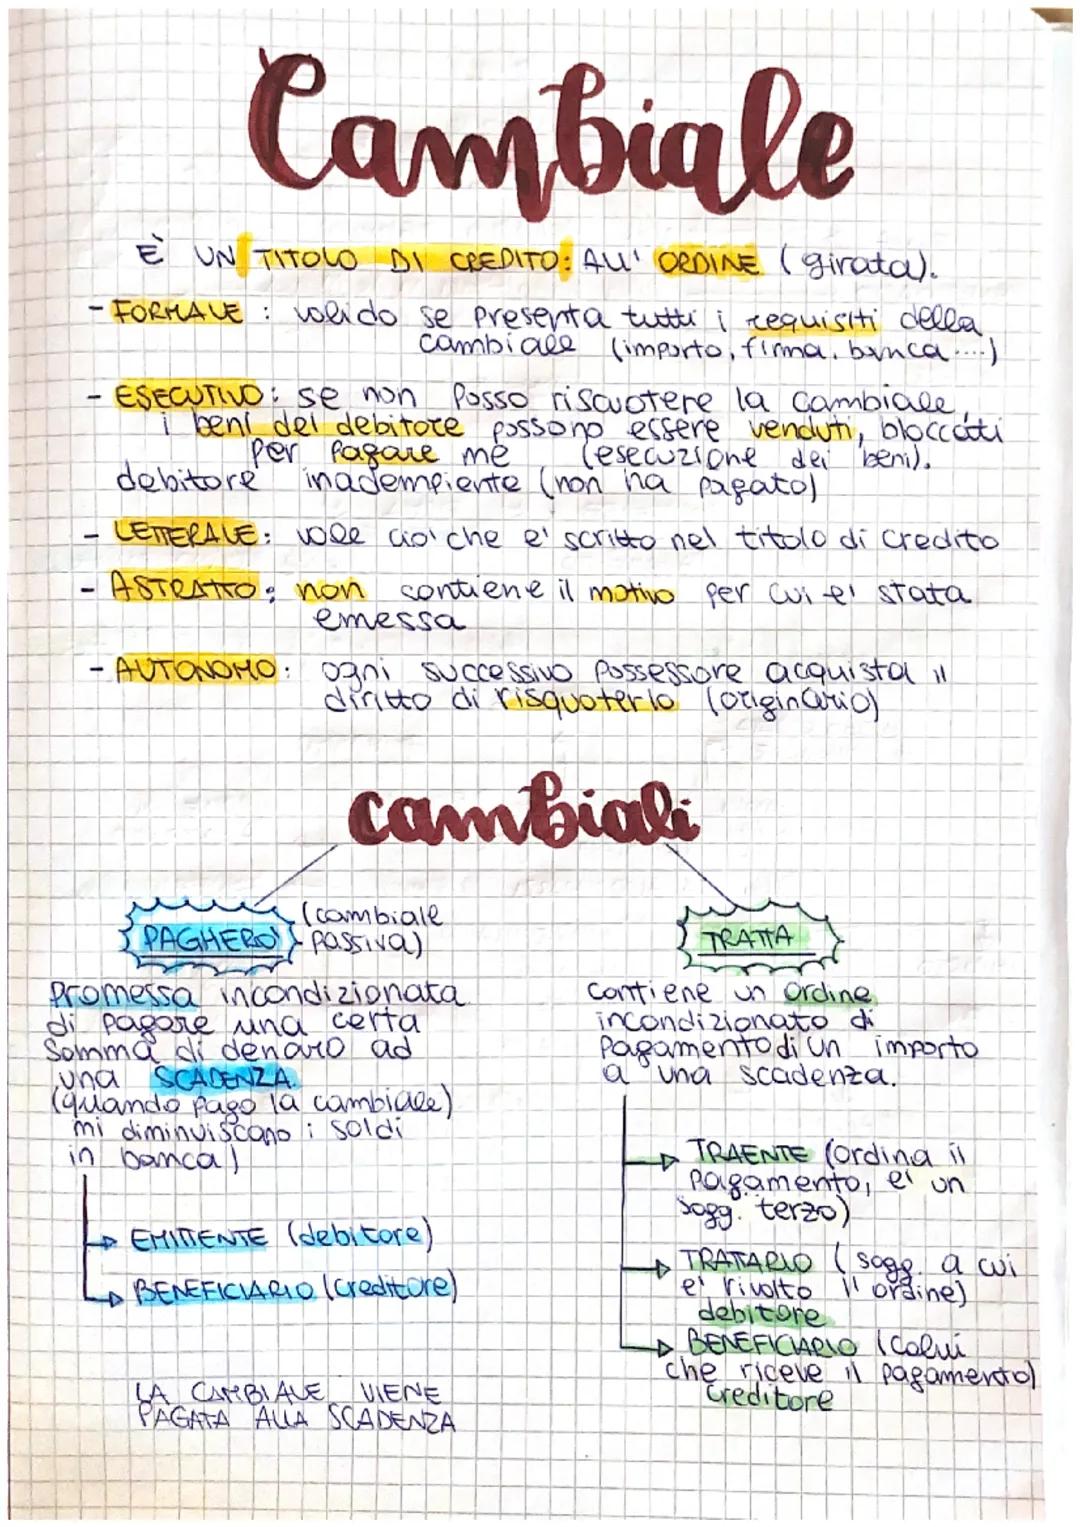 Cambiale
È UN TITOLO DI CREDITO: ALL' ORDINE (girata).
- FORMALE : valido se presenta tutti i requisiti della
cambiale (importo, firma, banca ....)
- ESECUTIVO: se non posso riscuotere la cambiale,
i beni del debitore possono essere venduti, bloccati
per pagare me (esecuzione dei beni).
debitore inadempiente (non ha pagato)
- LETTERALE: vale cio' che e' scritto nel titolo di credito
- ASTRATTO: non contiene il motivo per cui e' stata
emessa
- AUTONOMO: ogni successivo possessore acquista il
diritto di risquoterlo (originario)
cambiali
PAGHERO' (cambiale
passiva)
Promessa incondizionata
di pagare una certa
somma di denaro ad
una SCADENZA.
(quando pago la cambiale)
mi diminuiscono i soldi
in banca)
EMITTENTE (debitore)
BENEFICIARIO (creditore)
LA CAMBIALE VIENE
PAGATA ALLA SCADENZA
TRATTA
contiene un ordine
incondizionato di
pagamento di un importo
a una scadenza.
TRAENTE (ordina il
pagamento, e' un
sogg. terzo)
TRATTARIO (sogg. a cui
e' rivolto l'ordine)
debitore
BENEFICIARIO (colui
che riceve il pagamento)
creditore